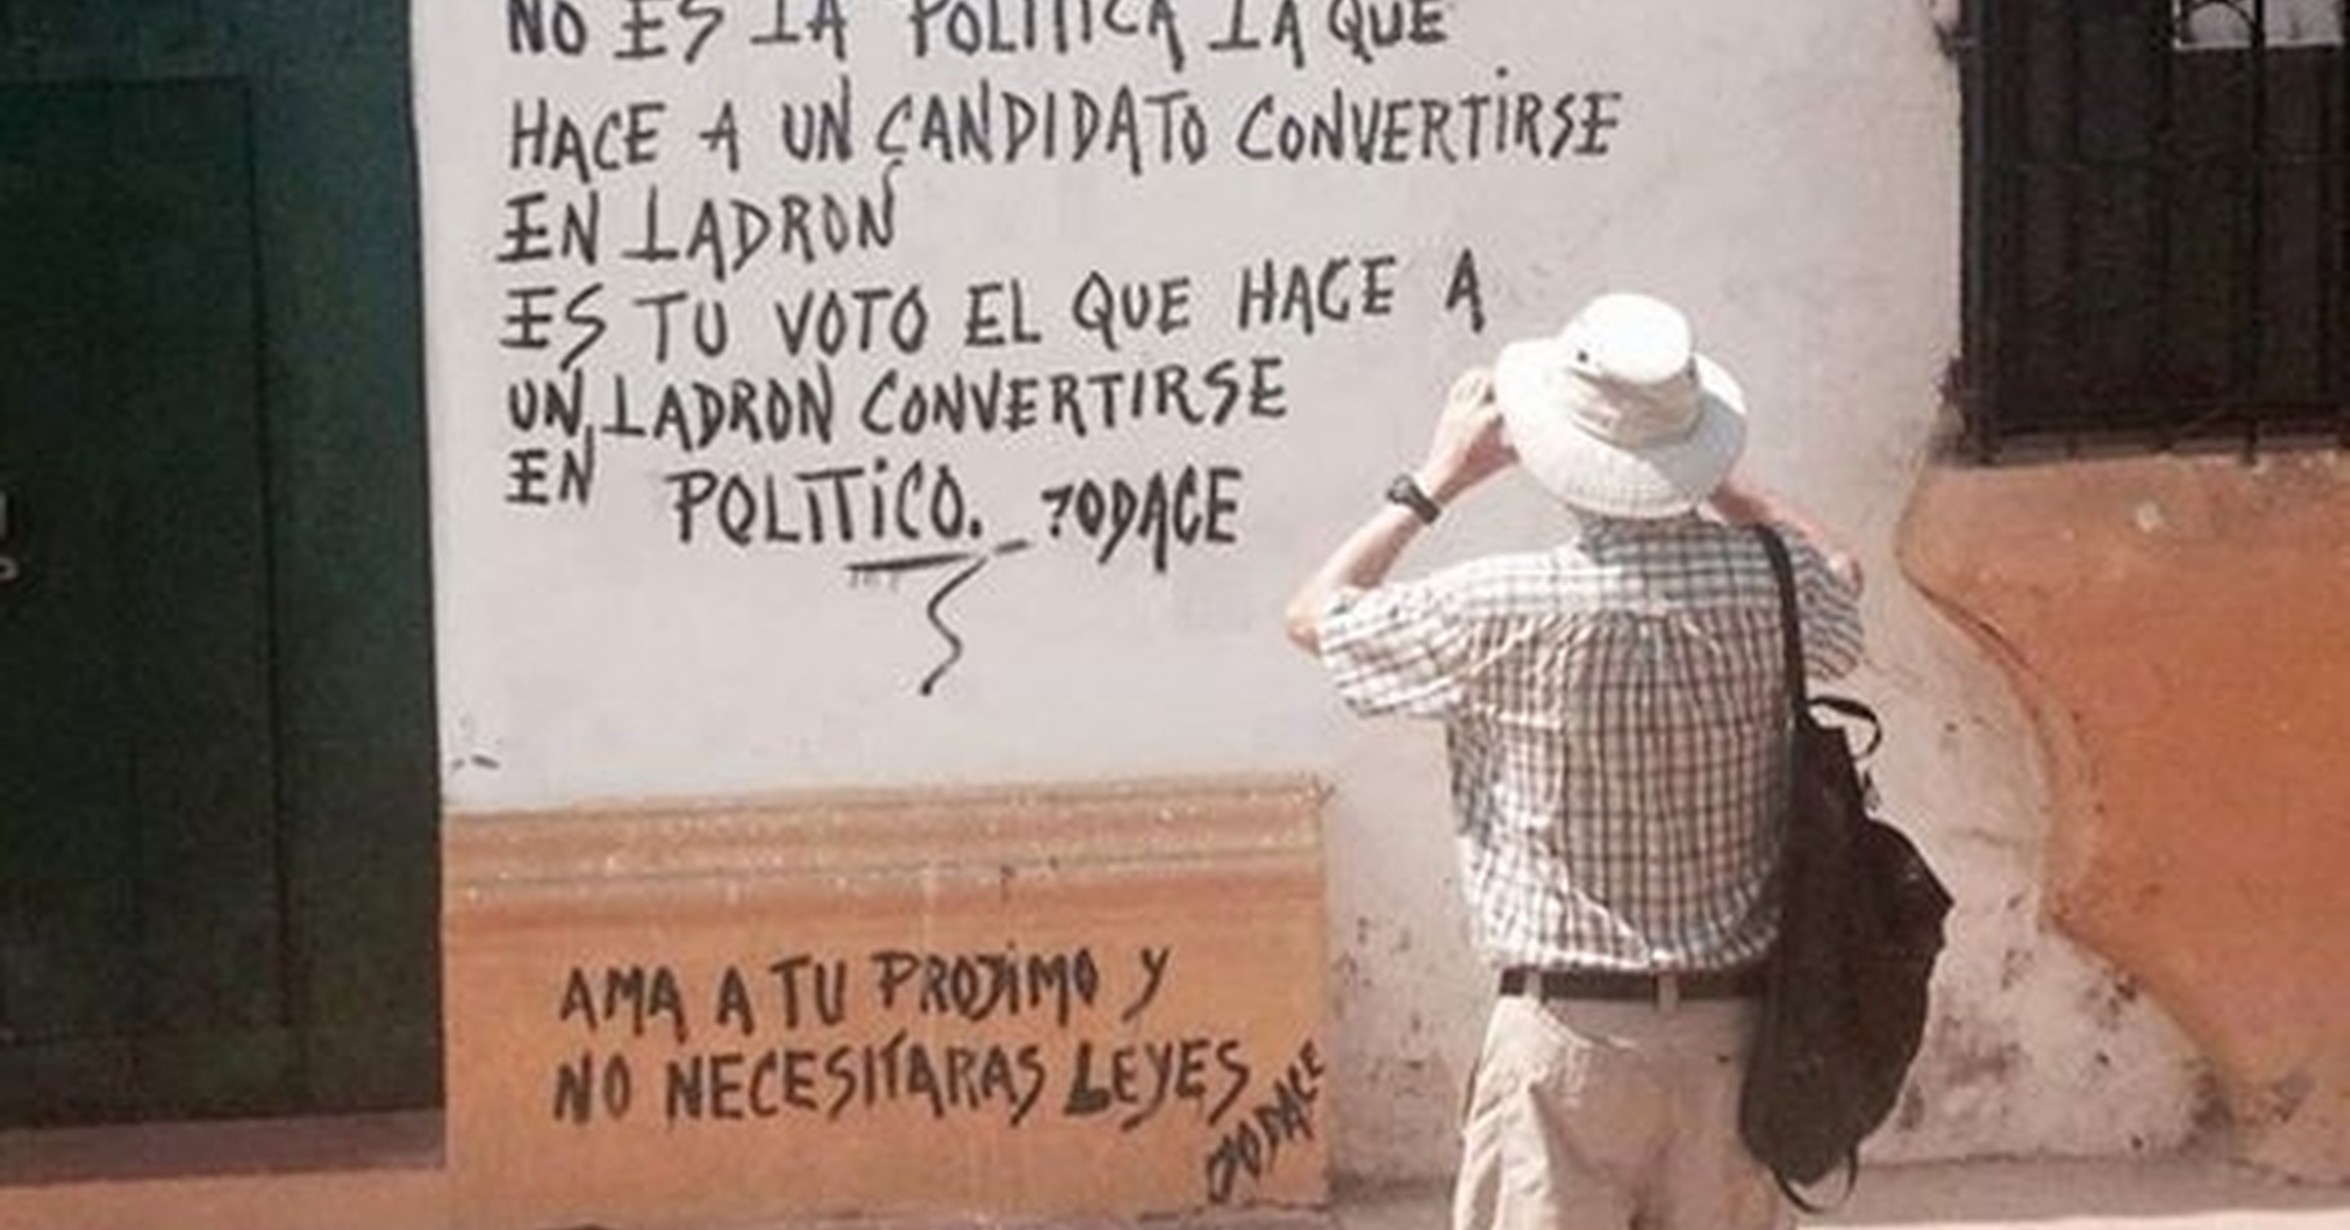 NO ES LA POLITICA LA QUE
HACE A UN CANDIDATO CONVERTIRSE
EN LADRON
ES TU VOTO EL QUE HACE A
UN LADRON CONVERTIRSE
EN POLITICO. JODACE
AMA A TU PROJIMO Y
NO NECESITARAS LEYES
JODACE